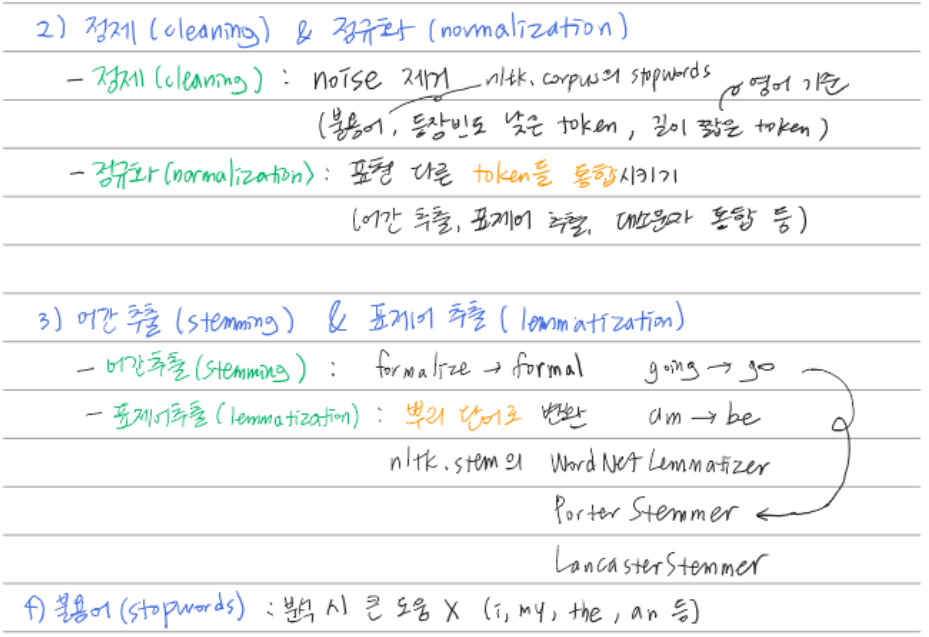 2) 정제 (cleaning) & 정규화 (normalization)
- 정제 (cleaning) : noise 제거 nltk.corpus의 stopwords 영어 기준
(불용어, 등장빈도 낮은 token, 길이 짧은 token)
- 정규화 (normalization) : 표현 다른 token들 통합시키기
(어간 추출, 표제어 추출, 대소문자 통합 등)
3) 어간 추출 (stemming) & 표제어 추출 (lemmatization)
- 어간추출 (stemming) : formalize → formal going → go
- 표제어추출 (lemmatization) : 뿌리 단어로 변환 am → be
nltk.stem의 WordNetLemmatizer
Porter Stemmer
LancasterStemmer
4) 불용어 (stopwords) : 분석 시 큰 도움 X (i, my, the, an 등)